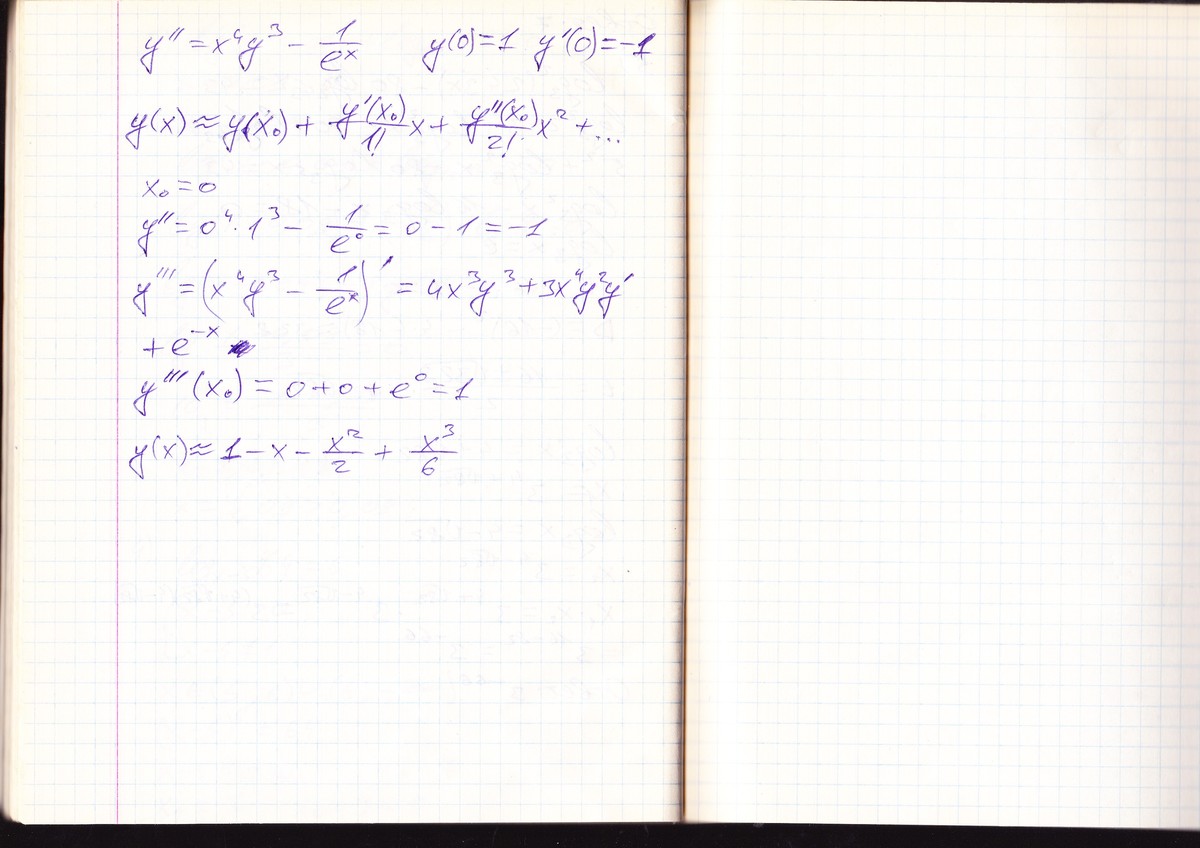 y'' = x⁴y³ − 1/eˣ   y(0)=1   y'(0)=−1
y(x) ≈ y(x₀) + y'(x₀)/1! x + y''(x₀)/2! x² + ...
x₀ = 0
y'' = 0⁴·1³ − 1/e⁰ = 0 − 1 = −1
y''' = (x⁴y³ − 1/eˣ)' = 4x³y³ + 3x⁴y²y'
+ e⁻ˣ
y'''(x₀) = 0 + 0 + e⁰ = 1
y(x) ≈ 1 − x − x²/2 + x³/6